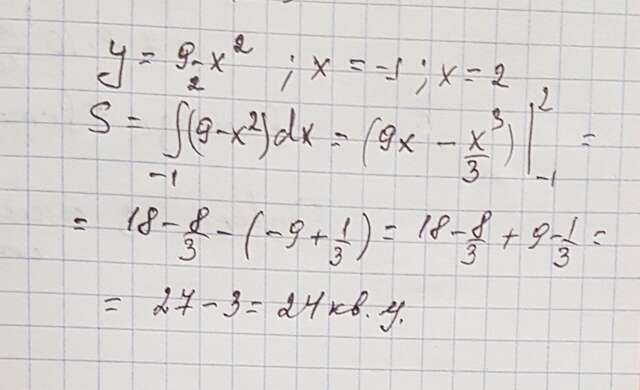 y = 9 - x² ; x = -1 ; x = 2
S = ∫₋₁² (9 - x²) dx = (9x - x³/3) |₋₁² =
= 18 - 8/3 - (-9 + 1/3) = 18 - 8/3 + 9 - 1/3 =
= 27 - 3 = 24 кв. у.